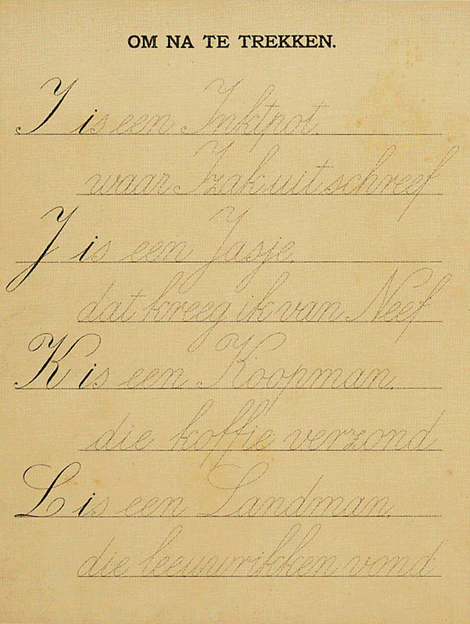 OM NA TE TREKKEN.
I is een Inktpot,
waar Izak uit schreef
J is een Jasje,
dat kreeg ik van Neef
K is een Koopman,
die koffie verzond
L is een Landman,
die leeuwrikken vond